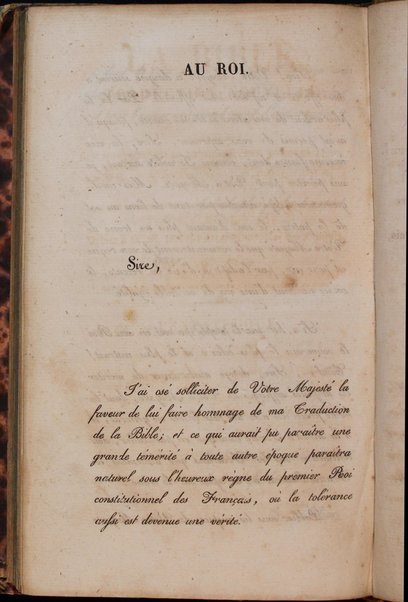 AU ROI.
Sire,
J'ai osé solliciter de Votre Majesté la
faveur de lui faire hommage de ma Traduction
de la Bible; et ce qui aurait pu paraître une
grande témérité à toute autre époque paraîtra
naturel sous l'heureux règne du premier Roi
constitutionnel des Français, où la tolérance
aussi est devenue une vérité.